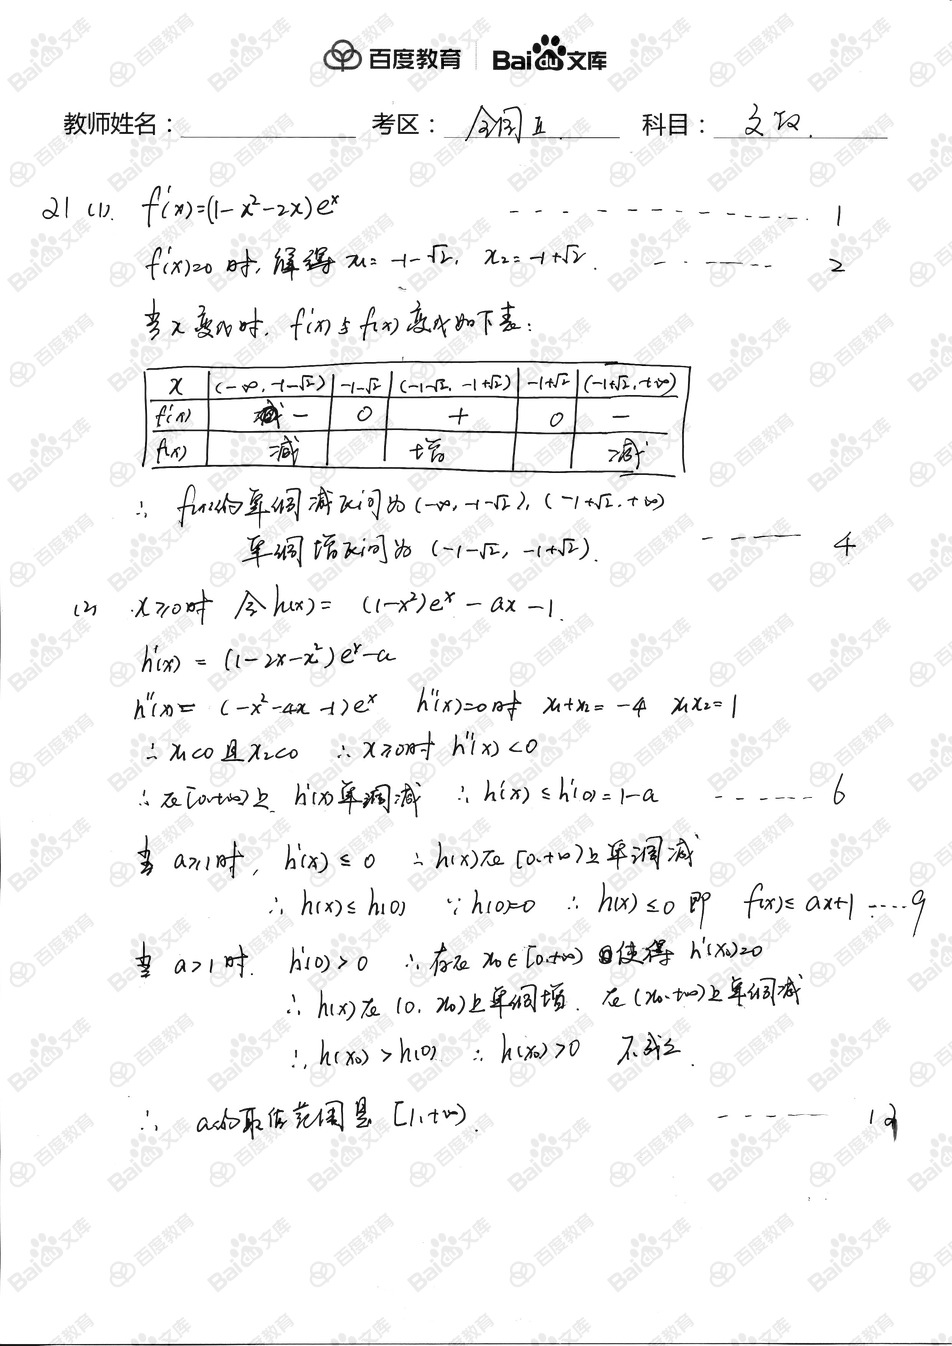 百度教育 Bai du 文库
教师姓名： 考区： 全国Ⅱ 科目： 文数.
21 (1). f'(x)=(1-x²-2x)eˣ ------------- 1
f'(x)=0 时, 解得 x₁= -1-√2, x₂= -1+√2. ------- 2
当 x 变化时, f'(x) 与 f(x) 变化如下表:
x (-∞, -1-√2) -1-√2 (-1-√2, -1+√2) -1+√2 (-1+√2, +∞)
f'(x) - 0 + 0 -
f(x) 减 增 减
∴ f(x)的单调减区间为 (-∞, -1-√2), (-1+√2, +∞)
单调增区间为 (-1-√2, -1+√2). ------ 4
(2) x≥0时 令h(x)= (1-x²)eˣ - ax - 1.
h'(x) = (1-2x-x²)eˣ-a
h''(x)= (-x²-4x-1)eˣ h''(x)=0时 x₁+x₂=-4 x₁x₂=1
∴ x₁<0 且 x₂<0 ∴ x≥0时 h''(x)<0
∴ 在[0,+∞)上 h'(x)单调减 ∴ h'(x)≤h'(0)=1-a ------ 6
当 a≥1时, h'(x)≤0 ∴ h(x)在[0,+∞)上单调减
∴ h(x)≤h(0) ∵ h(0)=0 ∴ h(x)≤0 即 f(x)≤ax+1 ----9
当 a>1时. h'(0)>0 ∴ 存在 x₀∈[0,+∞) 使得 h'(x₀)=0
∴ h(x)在 (0, x₀)上单调增. 在(x₀,+∞)上单调减
∴ h(x₀)>h(0) ∴ h(x₀)>0 不成立
∴ a的取值范围是 [1,+∞). ------ 12